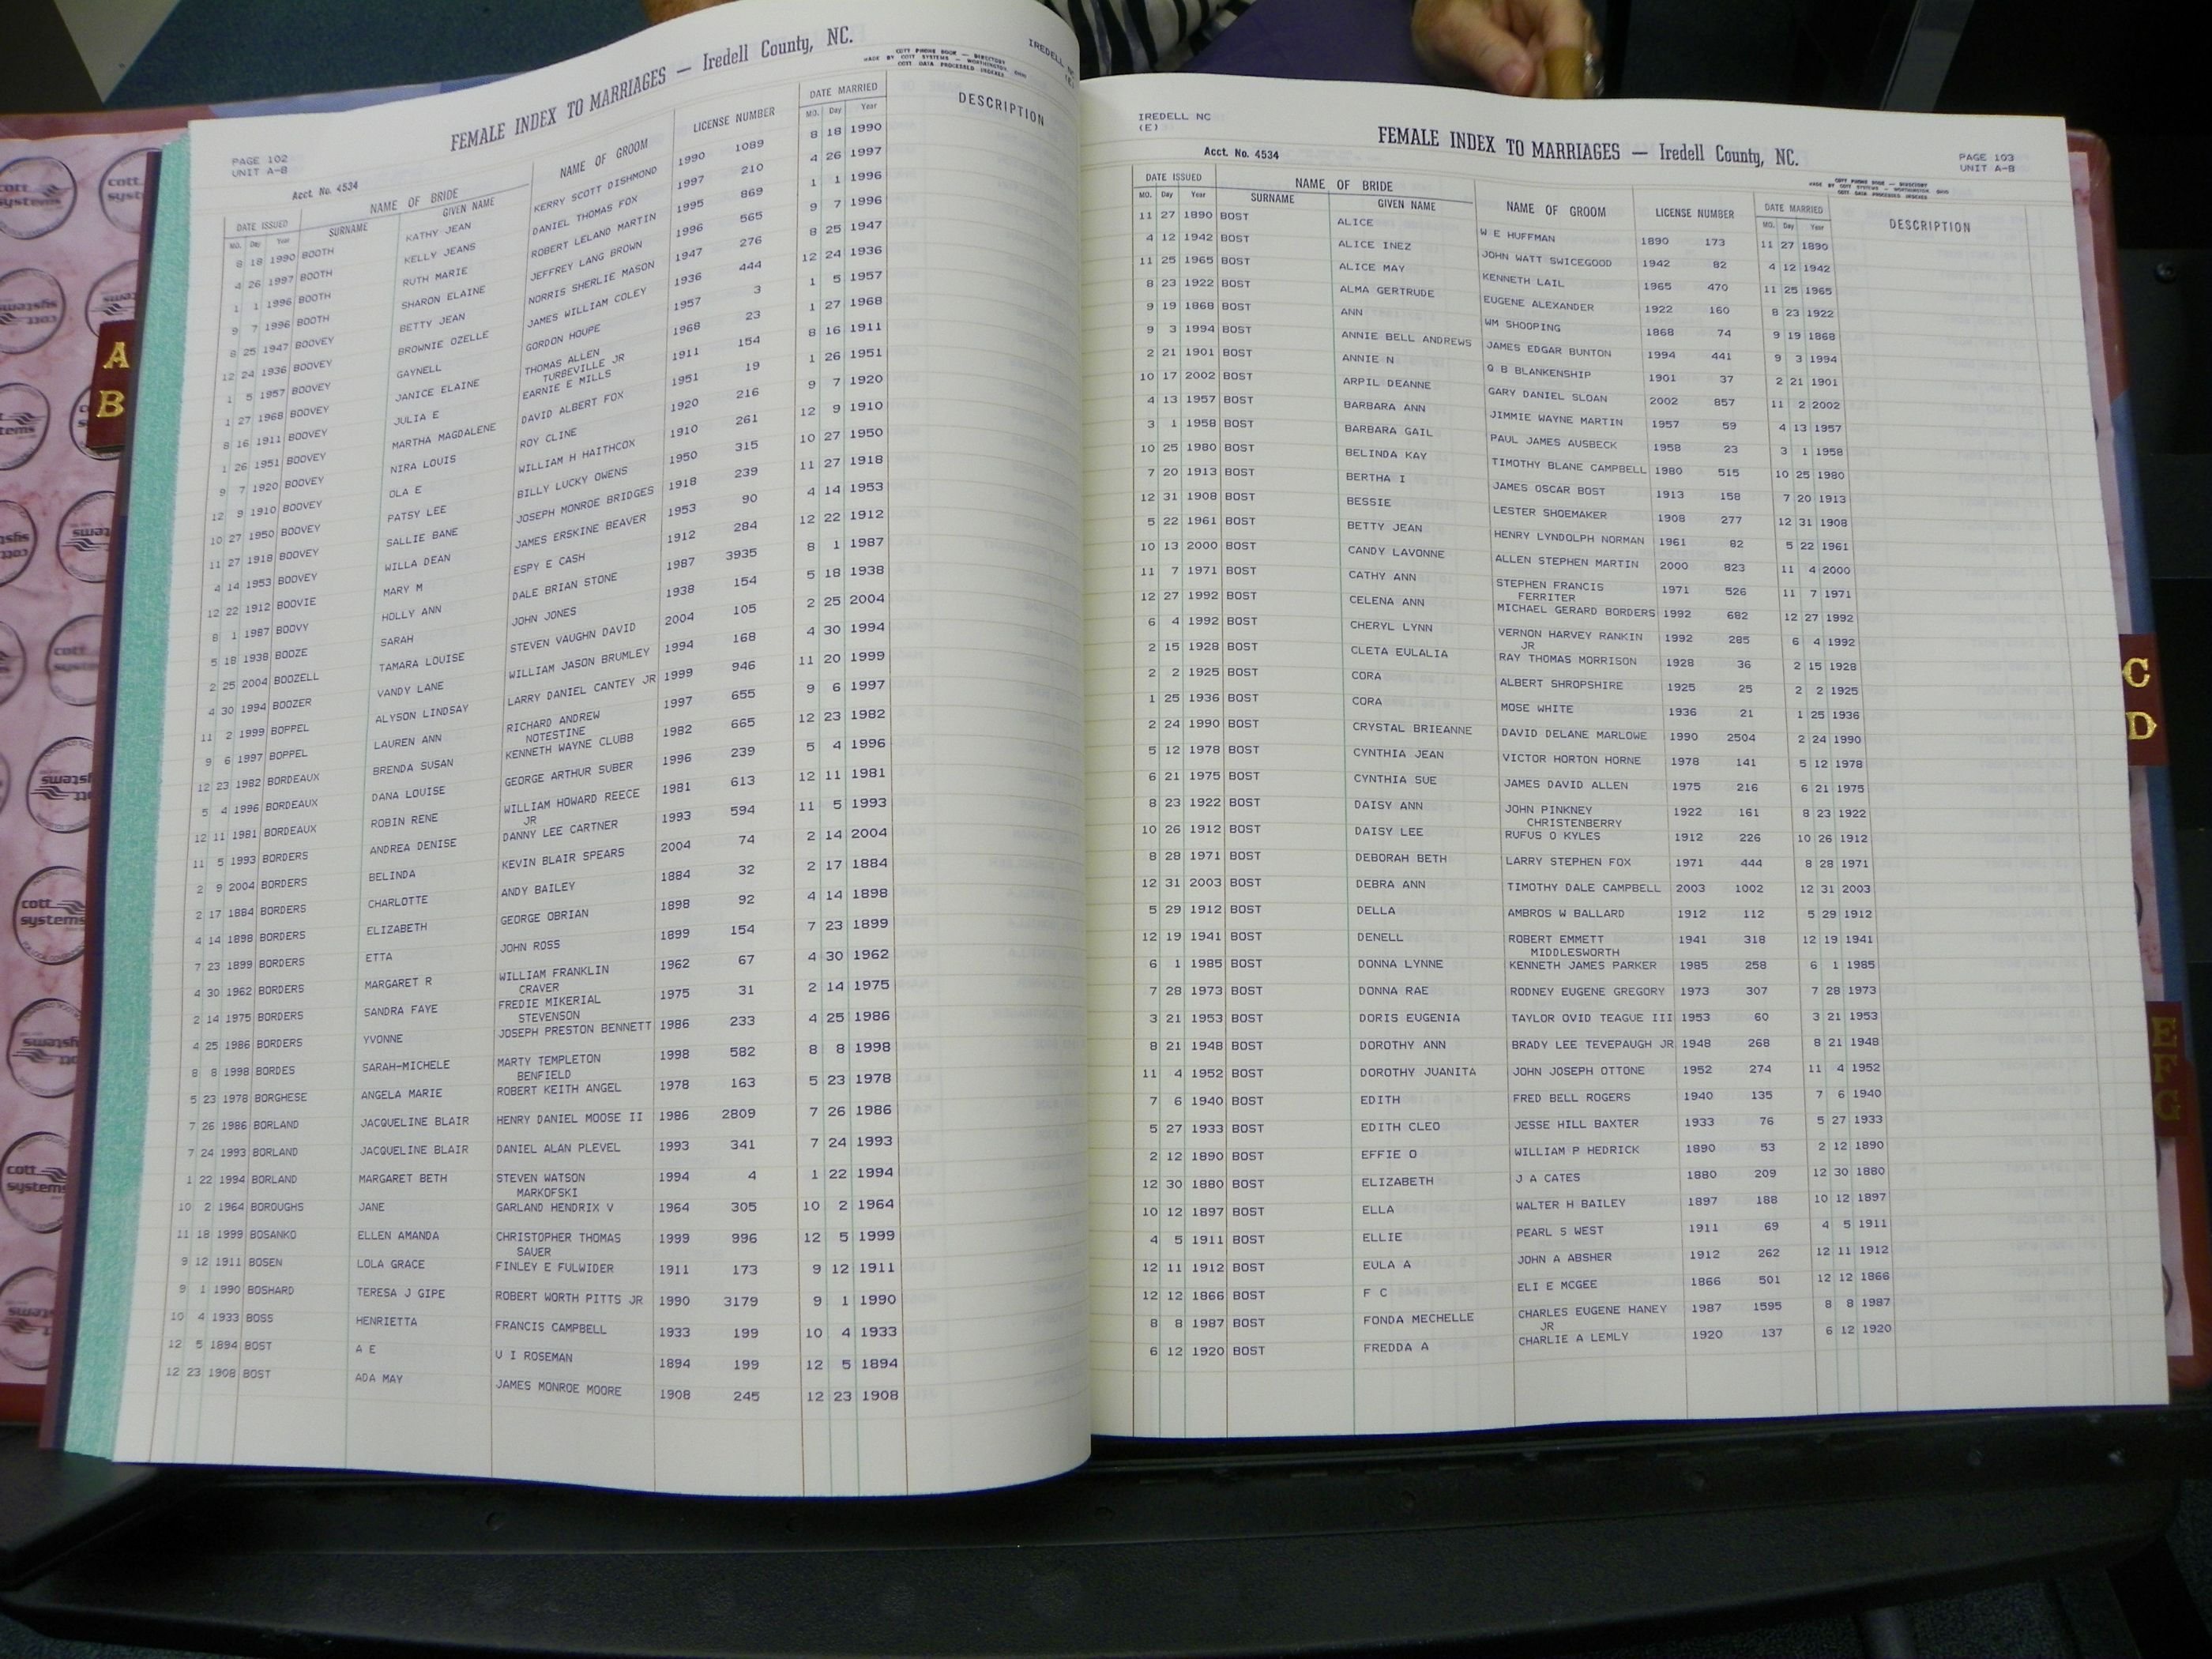 FEMALE INDEX TO MARRIAGES — Iredell County, NC.
PAGE 102
UNIT A-B
Acct. No. 4534
IREDELL NC
(E)
COTT PHONE BOOK — DIRECTORY
MADE BY COTT SYSTEMS — WORTHINGTON OHIO
COTT DATA PROCESSED INDEXES
DATE ISSUED NAME OF BRIDE NAME OF GROOM LICENSE NUMBER DATE MARRIED DESCRIPTION
MO. Day Year SURNAME GIVEN NAME MO. Day Year
8 18 1990 BOOTH KATHY JEAN KERRY SCOTT DISHMOND 1990 1089 8 18 1990
4 26 1997 BOOTH KELLY JEANS DANIEL THOMAS FOX 1997 210 4 26 1997
1 1 1996 BOOTH RUTH MARIE ROBERT LELAND MARTIN 1995 869 1 1 1996
9 7 1996 BOOTH SHARON ELAINE JEFFREY LANG BROWN 1996 565 9 7 1996
8 25 1947 BOOVEY BETTY JEAN NORRIS SHERLIE MASON 1947 276 8 25 1947
12 24 1936 BOOVEY BROWNIE OZELLE JAMES WILLIAM COLEY 1936 444 12 24 1936
1 5 1957 BOOVEY GAYNELL GORDON HOUPE 1957 3 1 5 1957
1 27 1968 BOOVEY JANICE ELAINE THOMAS ALLEN 1968 23 1 27 1968
TURBEVILLE JR
8 16 1911 BOOVEY JULIA E EARNIE E MILLS 1911 154 8 16 1911
1 26 1951 BOOVEY MARTHA MAGDALENE DAVID ALBERT FOX 1951 19 1 26 1951
9 7 1920 BOOVEY NIRA LOUIS ROY CLINE 1920 216 9 7 1920
12 9 1910 BOOVEY OLA E WILLIAM H HAITHCOX 1910 261 12 9 1910
10 27 1950 BOOVEY PATSY LEE BILLY LUCKY OWENS 1950 315 10 27 1950
11 27 1918 BOOVEY SALLIE BANE JOSEPH MONROE BRIDGES 1918 239 11 27 1918
4 14 1953 BOOVEY WILLA DEAN JAMES ERSKINE BEAVER 1953 90 4 14 1953
12 22 1912 BOOVIE MARY M ESPY E CASH 1912 284 12 22 1912
8 1 1987 BOOVY HOLLY ANN DALE BRIAN STONE 1987 3935 8 1 1987
5 18 1938 BOOZE SARAH JOHN JONES 1938 154 5 18 1938
2 25 2004 BOOZELL TAMARA LOUISE STEVEN VAUGHN DAVID 2004 105 2 25 2004
4 30 1994 BOOZER VANDY LANE WILLIAM JASON BRUMLEY 1994 168 4 30 1994
11 2 1999 BOPPEL ALYSON LINDSAY LARRY DANIEL CANTEY JR 1999 946 11 20 1999
9 6 1997 BOPPEL LAUREN ANN RICHARD ANDREW 1997 655 9 6 1997
NOTESTINE
12 23 1982 BORDEAUX BRENDA SUSAN KENNETH WAYNE CLUBB 1982 665 12 23 1982
5 4 1996 BORDEAUX DANA LOUISE GEORGE ARTHUR SUBER 1996 239 5 4 1996
12 11 1981 BORDEAUX ROBIN RENE WILLIAM HOWARD REECE 1981 613 12 11 1981
JR
11 5 1993 BORDERS ANDREA DENISE DANNY LEE CARTNER 1993 594 11 5 1993
2 9 2004 BORDERS BELINDA KEVIN BLAIR SPEARS 2004 74 2 14 2004
2 17 1884 BORDERS CHARLOTTE ANDY BAILEY 1884 32 2 17 1884
4 14 1898 BORDERS ELIZABETH GEORGE OBRIAN 1898 92 4 14 1898
7 23 1899 BORDERS ETTA JOHN ROSS 1899 154 7 23 1899
4 30 1962 BORDERS MARGARET R WILLIAM FRANKLIN 1962 67 4 30 1962
CRAVER
2 14 1975 BORDERS SANDRA FAYE FREDIE MIKERIAL 1975 31 2 14 1975
STEVENSON
4 25 1986 BORDERS YVONNE JOSEPH PRESTON BENNETT 1986 233 4 25 1986
8 8 1998 BORDES SARAH-MICHELE MARTY TEMPLETON 1998 582 8 8 1998
BENFIELD
5 23 1978 BORGHESE ANGELA MARIE ROBERT KEITH ANGEL 1978 163 5 23 1978
7 26 1986 BORLAND JACQUELINE BLAIR HENRY DANIEL MOOSE II 1986 2809 7 26 1986
7 24 1993 BORLAND JACQUELINE BLAIR DANIEL ALAN PLEVEL 1993 341 7 24 1993
1 22 1994 BORLAND MARGARET BETH STEVEN WATSON 1994 4 1 22 1994
MARKOFSKI
10 2 1964 BOROUGHS JANE GARLAND HENDRIX V 1964 305 10 2 1964
11 18 1999 BOSANKO ELLEN AMANDA CHRISTOPHER THOMAS 1999 996 12 5 1999
SAUER
9 12 1911 BOSEN LOLA GRACE FINLEY E FULWIDER 1911 173 9 12 1911
9 1 1990 BOSHARD TERESA J GIPE ROBERT WORTH PITTS JR 1990 3179 9 1 1990
10 4 1933 BOSS HENRIETTA FRANCIS CAMPBELL 1933 199 10 4 1933
12 5 1894 BOST A E U I ROSEMAN 1894 199 12 5 1894
12 23 1908 BOST ADA MAY JAMES MONROE MOORE 1908 245 12 23 1908
IREDELL NC
(E)
FEMALE INDEX TO MARRIAGES — Iredell County, NC.
Acct. No. 4534
PAGE 103
UNIT A-B
COTT PHONE BOOK — DIRECTORY
MADE BY COTT SYSTEMS — WORTHINGTON OHIO
COTT DATA PROCESSED INDEXES
DATE ISSUED NAME OF BRIDE NAME OF GROOM LICENSE NUMBER DATE MARRIED DESCRIPTION
MO. Day Year SURNAME GIVEN NAME MO. Day Year
11 27 1890 BOST ALICE W E HUFFMAN 1890 173 11 27 1890
4 12 1942 BOST ALICE INEZ JOHN WATT SWICEGOOD 1942 82 4 12 1942
11 25 1965 BOST ALICE MAY KENNETH LAIL 1965 470 11 25 1965
8 23 1922 BOST ALMA GERTRUDE EUGENE ALEXANDER 1922 160 8 23 1922
9 19 1868 BOST ANN WM SHOOPING 1868 74 9 19 1868
9 3 1994 BOST ANNIE BELL ANDREWS JAMES EDGAR BUNTON 1994 441 9 3 1994
2 21 1901 BOST ANNIE N Q B BLANKENSHIP 1901 37 2 21 1901
10 17 2002 BOST ARPIL DEANNE GARY DANIEL SLOAN 2002 857 11 2 2002
4 13 1957 BOST BARBARA ANN JIMMIE WAYNE MARTIN 1957 59 4 13 1957
3 1 1958 BOST BARBARA GAIL PAUL JAMES AUSBECK 1958 23 3 1 1958
10 25 1980 BOST BELINDA KAY TIMOTHY BLANE CAMPBELL 1980 515 10 25 1980
7 20 1913 BOST BERTHA I JAMES OSCAR BOST 1913 158 7 20 1913
12 31 1908 BOST BESSIE LESTER SHOEMAKER 1908 277 12 31 1908
5 22 1961 BOST BETTY JEAN HENRY LYNDOLPH NORMAN 1961 82 5 22 1961
10 13 2000 BOST CANDY LAVONNE ALLEN STEPHEN MARTIN 2000 823 11 4 2000
11 7 1971 BOST CATHY ANN STEPHEN FRANCIS 1971 526 11 7 1971
FERRITER
12 27 1992 BOST CELENA ANN MICHAEL GERARD BORDERS 1992 682 12 27 1992
6 4 1992 BOST CHERYL LYNN VERNON HARVEY RANKIN 1992 285 6 4 1992
JR
2 15 1928 BOST CLETA EULALIA RAY THOMAS MORRISON 1928 36 2 15 1928
2 2 1925 BOST CORA ALBERT SHROPSHIRE 1925 25 2 2 1925
1 25 1936 BOST CORA MOSE WHITE 1936 21 1 25 1936
2 24 1990 BOST CRYSTAL BRIEANNE DAVID DELANE MARLOWE 1990 2504 2 24 1990
5 12 1978 BOST CYNTHIA JEAN VICTOR HORTON HORNE 1978 141 5 12 1978
6 21 1975 BOST CYNTHIA SUE JAMES DAVID ALLEN 1975 216 6 21 1975
8 23 1922 BOST DAISY ANN JOHN PINKNEY 1922 161 8 23 1922
CHRISTENBERRY
10 26 1912 BOST DAISY LEE RUFUS O KYLES 1912 226 10 26 1912
8 28 1971 BOST DEBORAH BETH LARRY STEPHEN FOX 1971 444 8 28 1971
12 31 2003 BOST DEBRA ANN TIMOTHY DALE CAMPBELL 2003 1002 12 31 2003
5 29 1912 BOST DELLA AMBROS W BALLARD 1912 112 5 29 1912
12 19 1941 BOST DENELL ROBERT EMMETT 1941 318 12 19 1941
MIDDLESWORTH
6 1 1985 BOST DONNA LYNNE KENNETH JAMES PARKER 1985 258 6 1 1985
7 28 1973 BOST DONNA RAE RODNEY EUGENE GREGORY 1973 307 7 28 1973
3 21 1953 BOST DORIS EUGENIA TAYLOR OVID TEAGUE III 1953 60 3 21 1953
8 21 1948 BOST DOROTHY ANN BRADY LEE TEVEPAUGH JR 1948 268 8 21 1948
11 4 1952 BOST DOROTHY JUANITA JOHN JOSEPH OTTONE 1952 274 11 4 1952
7 6 1940 BOST EDITH FRED BELL ROGERS 1940 135 7 6 1940
5 27 1933 BOST EDITH CLEO JESSE HILL BAXTER 1933 76 5 27 1933
2 12 1890 BOST EFFIE O WILLIAM P HEDRICK 1890 53 2 12 1890
12 30 1880 BOST ELIZABETH J A CATES 1880 209 12 30 1880
10 12 1897 BOST ELLA WALTER H BAILEY 1897 188 10 12 1897
4 5 1911 BOST ELLIE PEARL S WEST 1911 69 4 5 1911
12 11 1912 BOST EULA A JOHN A ABSHER 1912 262 12 11 1912
12 12 1866 BOST F C ELI E MCGEE 1866 501 12 12 1866
8 8 1987 BOST FONDA MECHELLE CHARLES EUGENE HANEY 1987 1595 8 8 1987
JR
6 12 1920 BOST FREDDA A CHARLIE A LEMLY 1920 137 6 12 1920
A
B
C
D
E
F
G
cott
systems